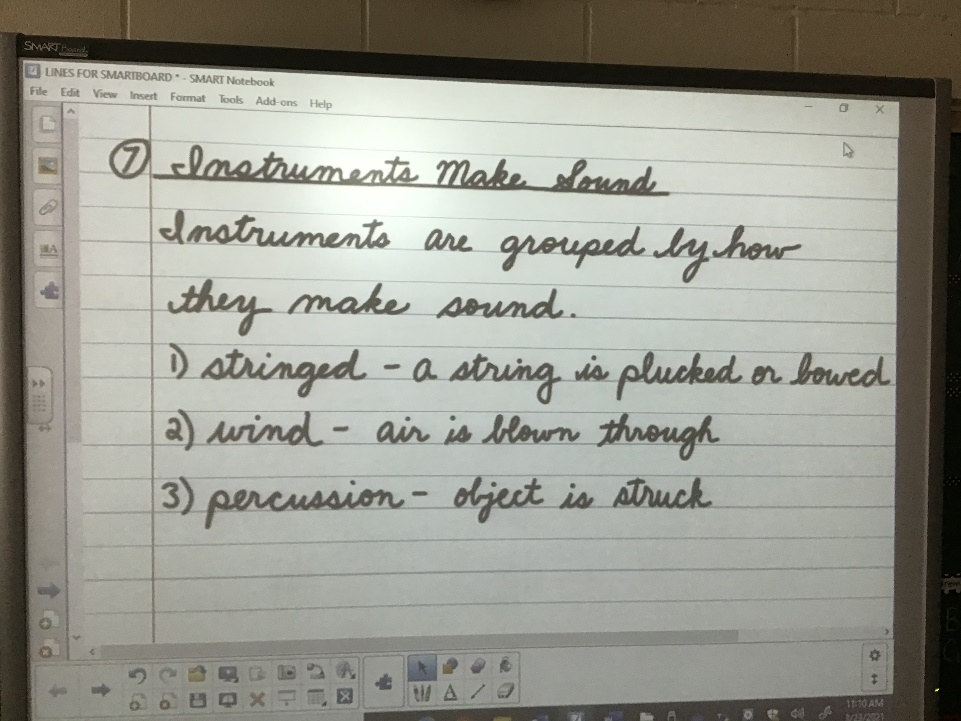 SMART Board
LINES FOR SMARTBOARD * - SMART Notebook
File Edit View Insert Format Tools Add-ons Help
7 Instruments Make Sound
Instruments are grouped by how
they make sound.
1) stringed - a string is plucked or bowed
2) wind - air is blown through
3) percussion - object is struck
11:10 AM